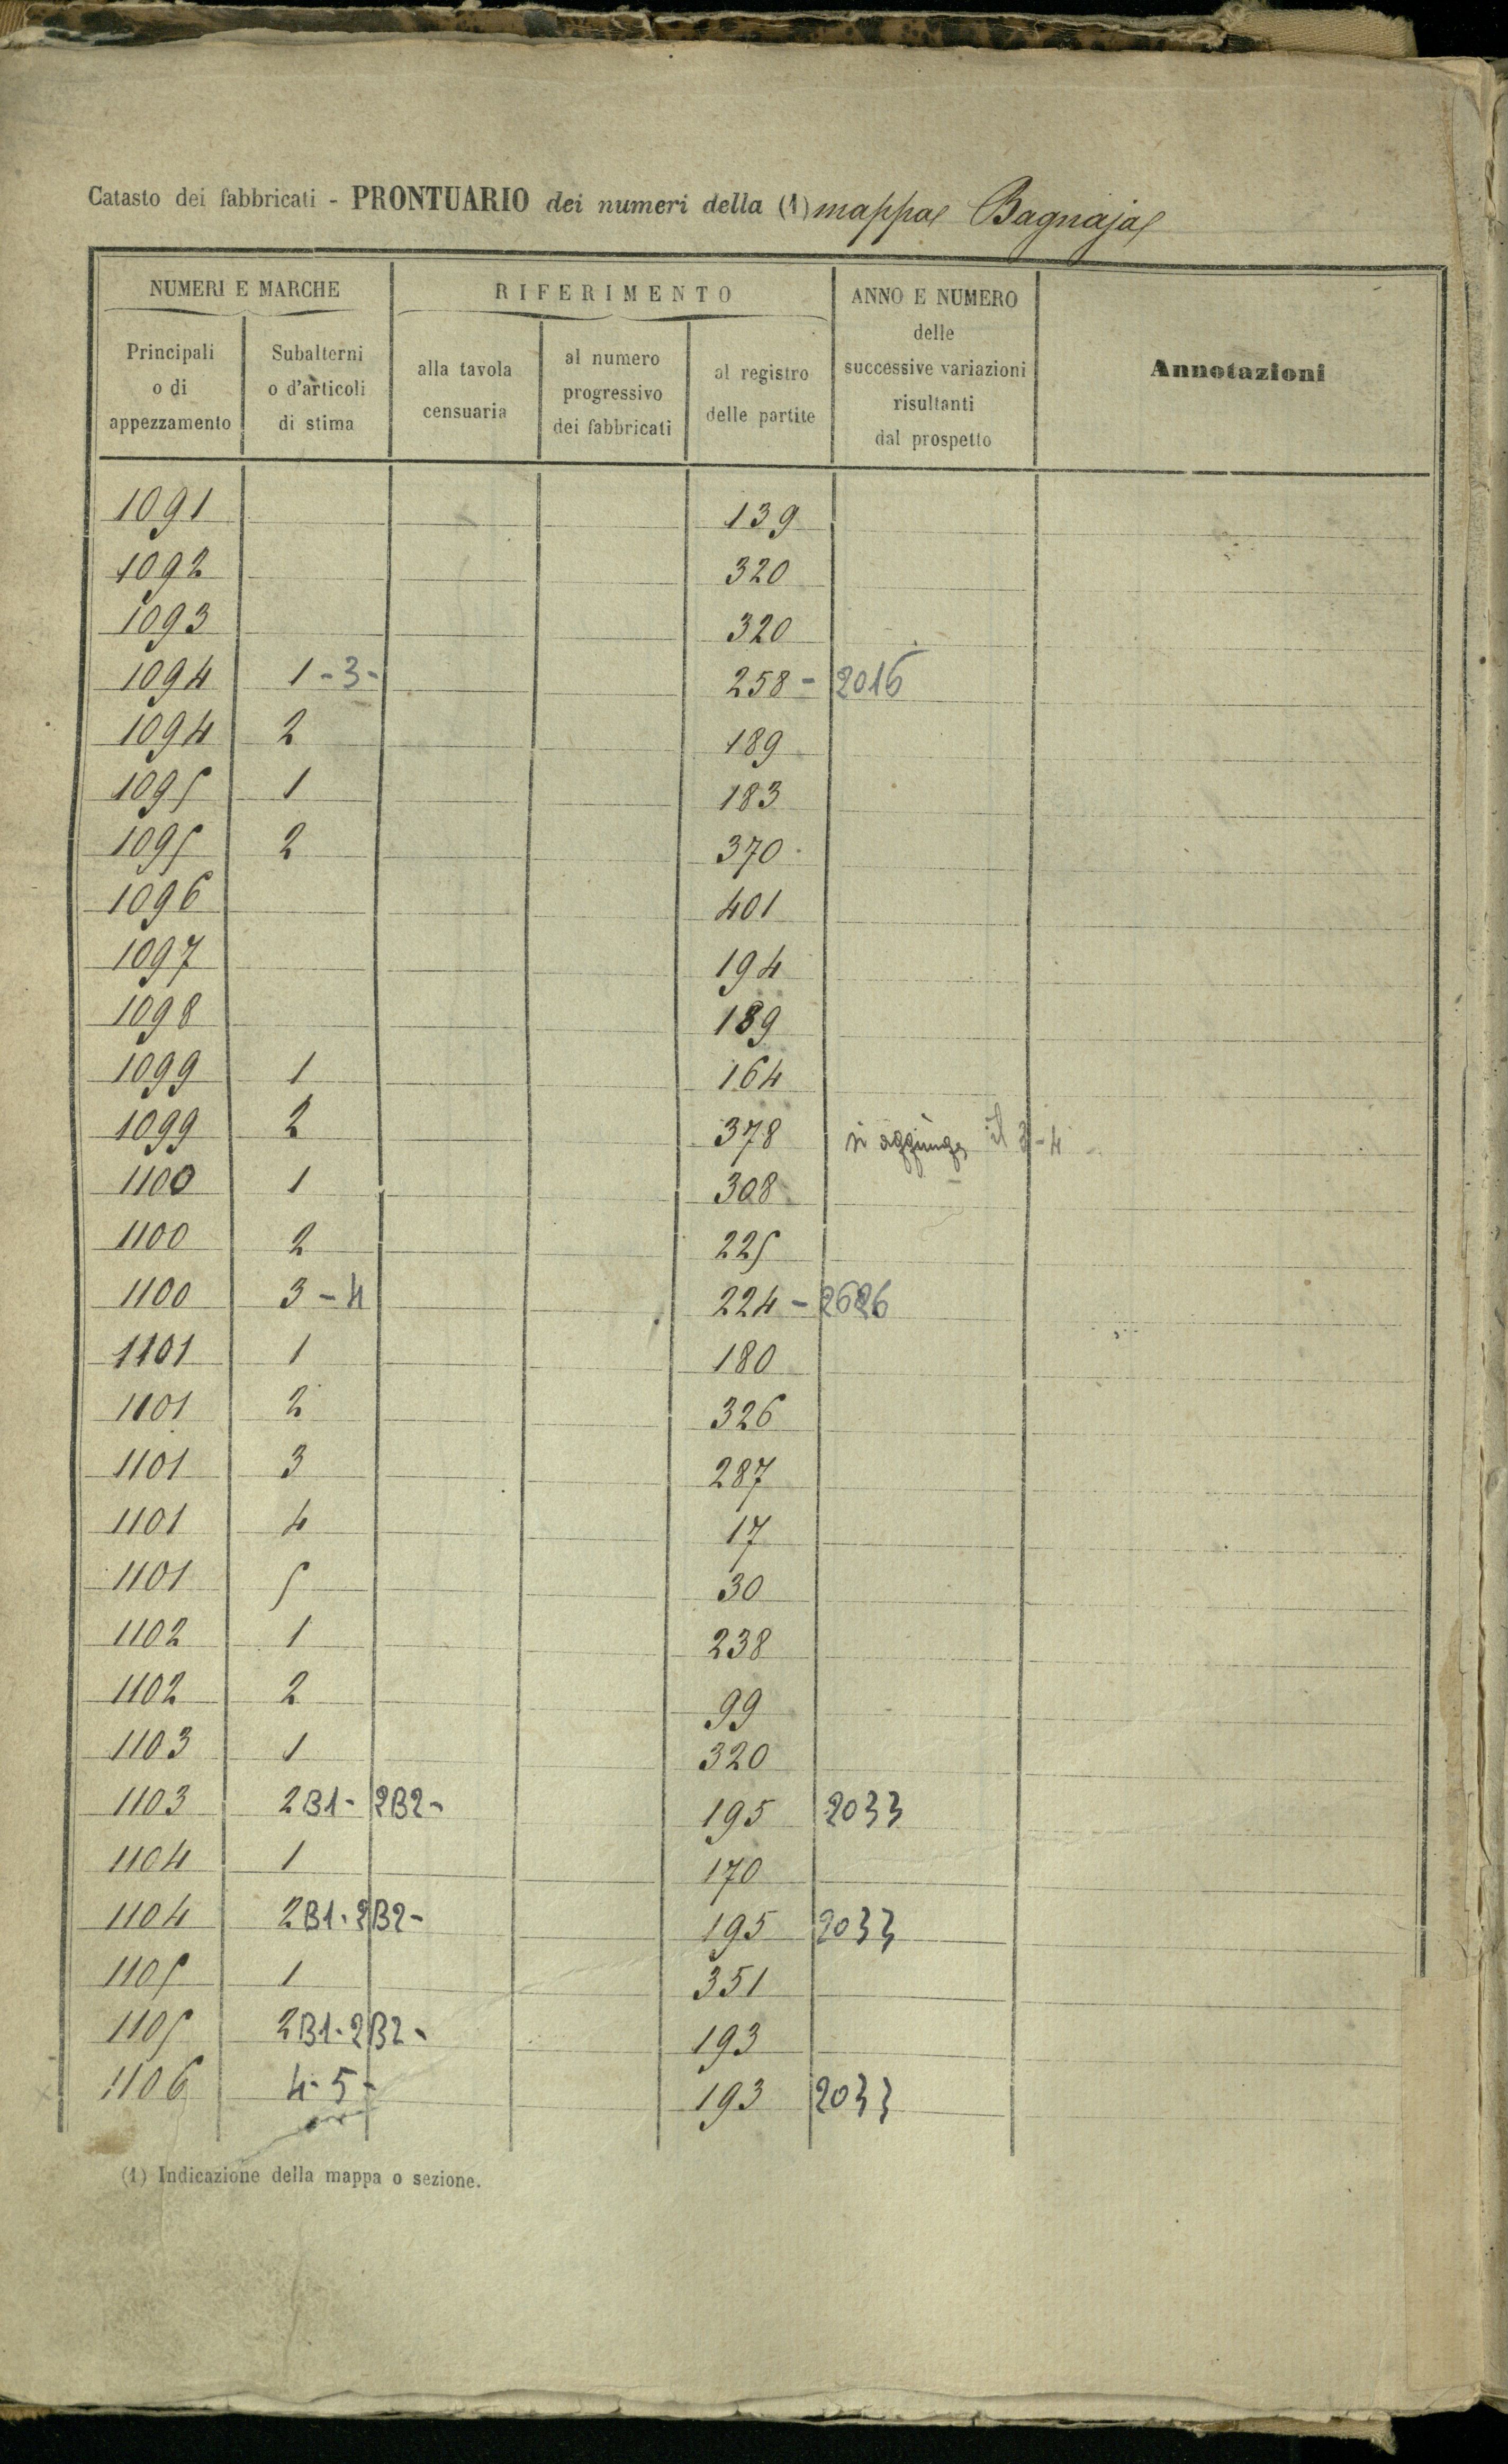 Catasto dei fabbricati - PRONTUARIO dei numeri della (1) mappa Bagnaja
NUMERI E MARCHE
RIFERIMENTO
ANNO E NUMERO
delle
successive variazioni
risultanti
dal prospetto
Annotazioni
Principali
o di
appezzamento
Subalterni
o d'articoli
di stima
alla tavola
censuaria
al numero
progressivo
dei fabbricati
al registro
delle partite
1091 139
1092 320
1093 320
1094 1 - 3 - 258 - 2016
1094 2 189
1095 1 183
1095 2 370
1096 401
1097 194
1098 189
1099 1 164
1099 2 378 si aggiunge il 3 - 4
1100 1 308
1100 2 225
1100 3 - 4 224 - 2626
1101 1 180
1101 2 326
1101 3 287
1101 4 17
1101 5 30
1102 1 238
1102 2 99
1103 1 320
1103 2B1 - 2B2 - 195 2033
1104 1 170
1104 2B1 - 2B2 - 195 2033
1105 1 351
1105 2B1 - 2B2 - 193
1106 4 - 5 - 193 2033
(1) Indicazione della mappa o sezione.